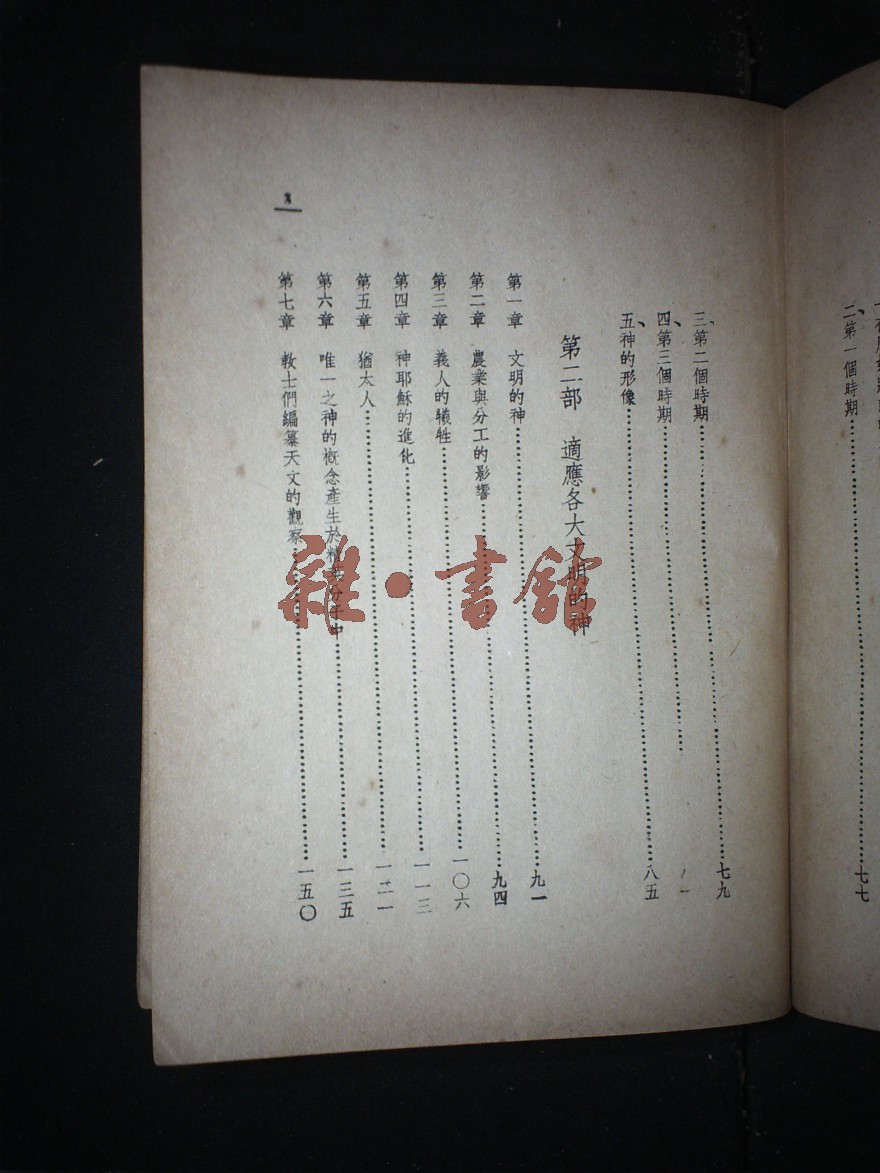 二、第一個時期……七七
三、第二個時期……七九
四、第三個時期……
五、神的形像……八五
第二部 適應各大文明的神
第一章 文明的神……九一
第二章 農業與分工的影響……九四
第三章 義人的犧牲……一〇六
第四章 神耶穌的進化……一一三
第五章 猶太人……一二一
第六章 唯一之神的概念產生於……一三五
第七章 教士們編纂天文的觀察……一五〇
雜·書館